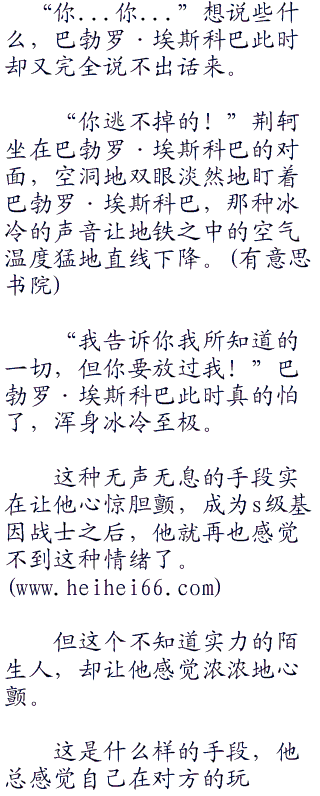 “你...你...”想说些什
么，巴勃罗·埃斯科巴此时
却又完全说不出话来。
“你逃不掉的！”荆轲
坐在巴勃罗·埃斯科巴的对
面，空洞地双眼淡然地盯着
巴勃罗·埃斯科巴，那种冰
冷的声音让地铁之中的空气
温度猛地直线下降。(有意思
书院)
“我告诉你我所知道的
一切，但你要放过我！”巴
勃罗·埃斯科巴此时真的怕
了，浑身冰冷至极。
这种无声无息的手段实
在让他心惊胆颤，成为s级基
因战士之后，他就再也感觉
不到这种情绪了。
(www.heihei66.com)
但这个不知道实力的陌
生人，却让他感觉浓浓地心
颤。
这是什么样的手段，他
总感觉自己在对方的玩